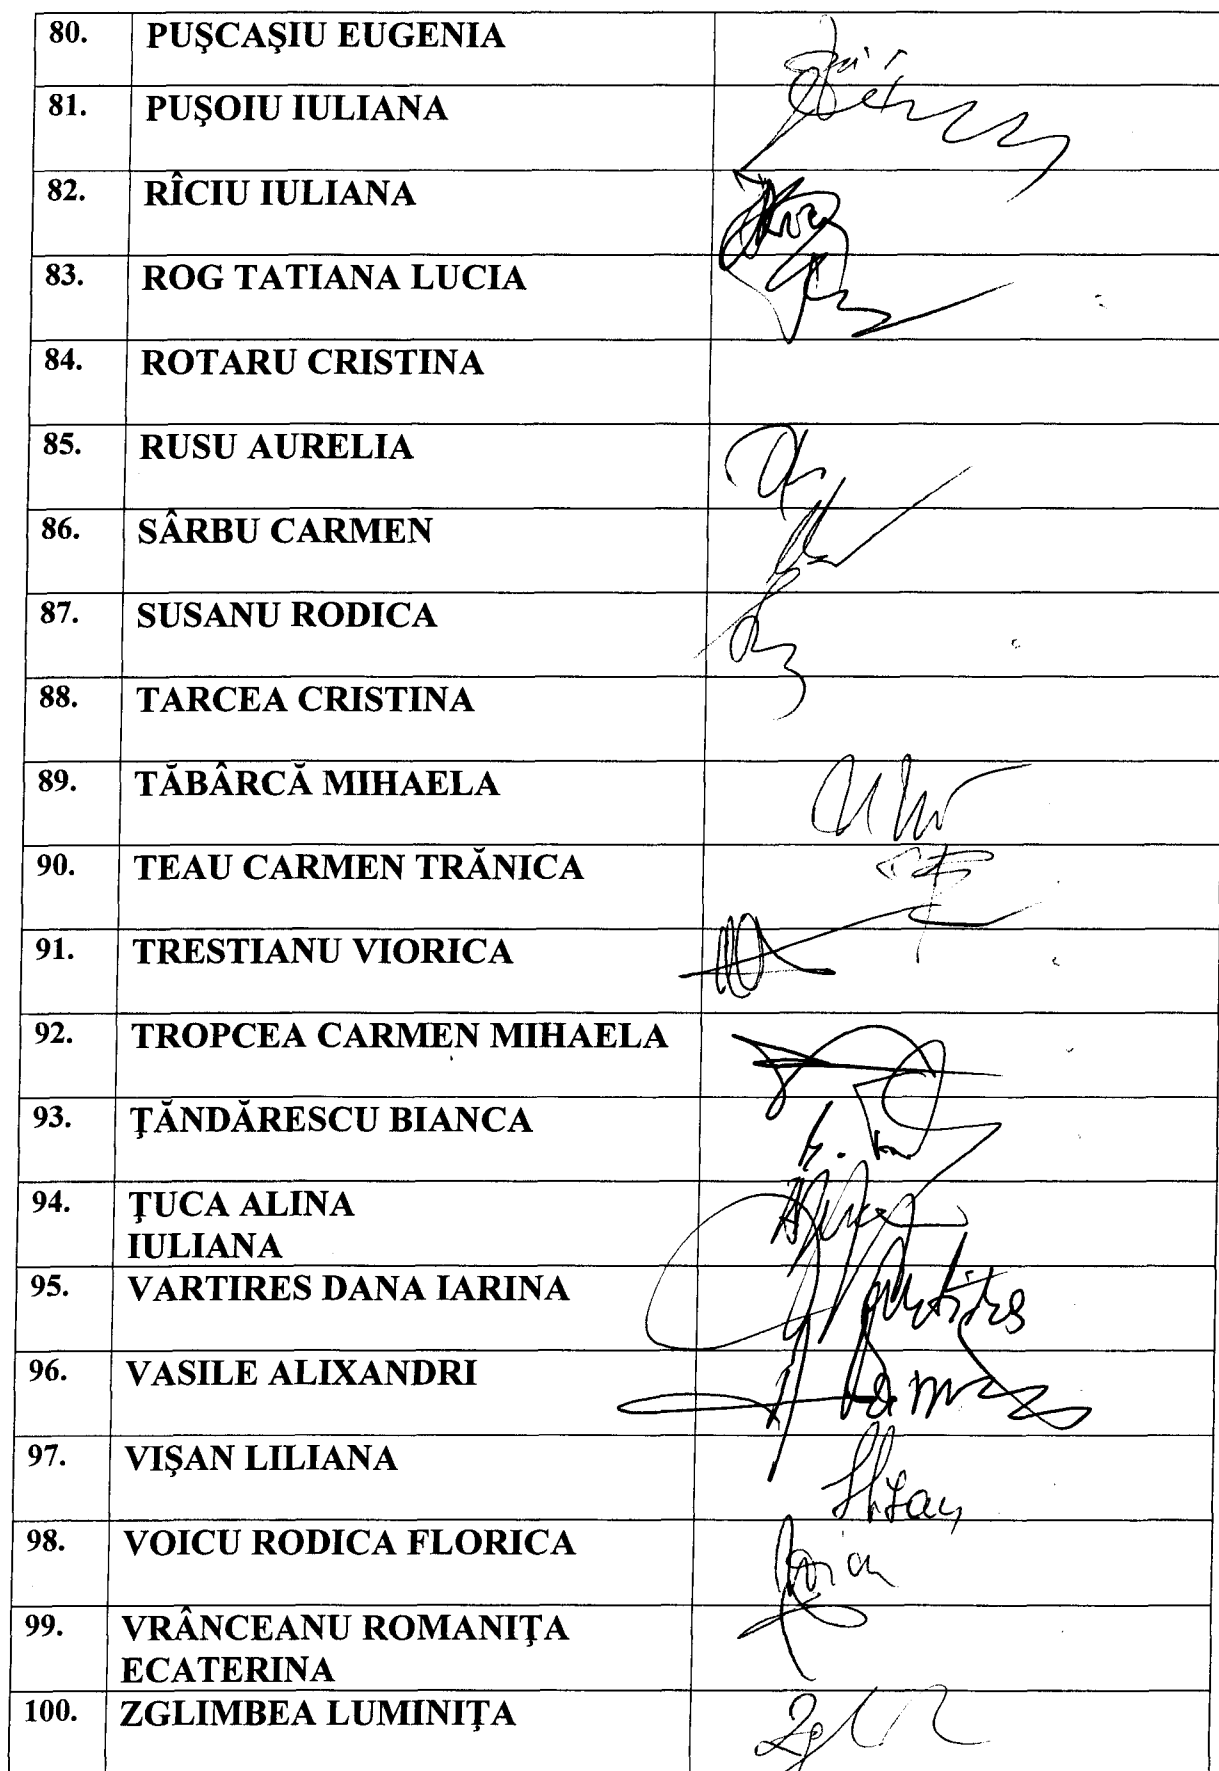 80. PUŞCAŞIU EUGENIA
81. PUŞOIU IULIANA
82. RÎCIU IULIANA
83. ROG TATIANA LUCIA
84. ROTARU CRISTINA
85. RUSU AURELIA
86. SÂRBU CARMEN
87. SUSANU RODICA
88. TARCEA CRISTINA
89. TĂBÂRCĂ MIHAELA
90. TEAU CARMEN TRĂNICA
91. TRESTIANU VIORICA
92. TROPCEA CARMEN MIHAELA
93. ŢĂNDĂRESCU BIANCA
94. ŢUCA ALINA
IULIANA
95. VARTIRES DANA IARINA
96. VASILE ALIXANDRI
97. VIŞAN LILIANA
98. VOICU RODICA FLORICA
99. VRÂNCEANU ROMANIŢA
ECATERINA
100. ZGLIMBEA LUMINIŢA